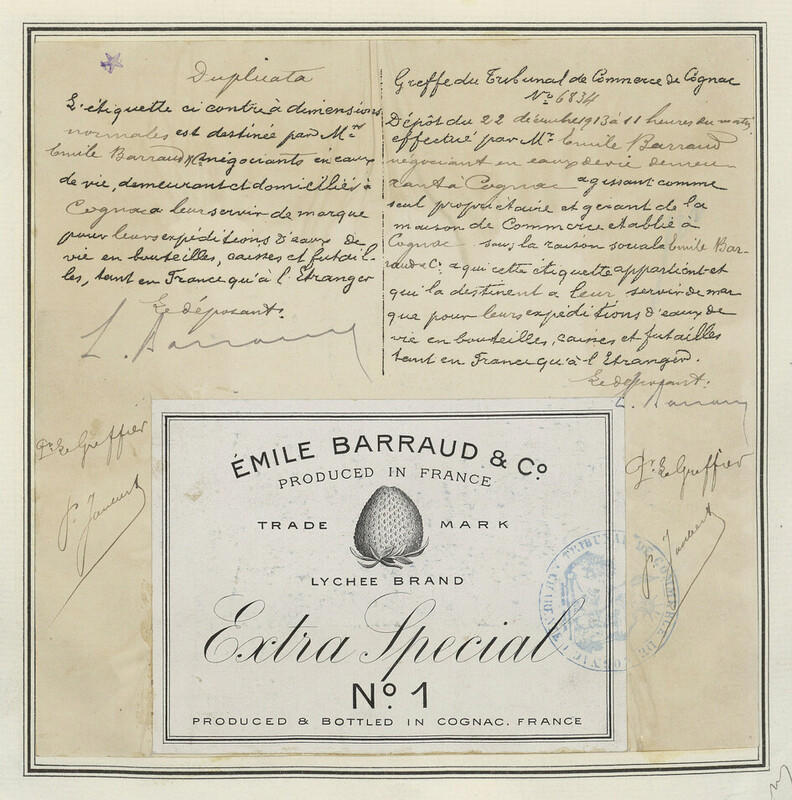 Duplicata
L'étiquette ci contre à dimensions
normales est destinée par Mrs
Emile Barraud & Co négociants en eaux
de vie, demeurant et domiciliés à
Cognac a leur servir de marque
pour leurs expéditions d'eaux de
vie en bouteilles, caisses et futail-
les, tant en France qu'à l'Etranger
Le déposant:
Greffe du Tribunal de Commerce de Cognac
No 6834
Dépôt du 22 décembre 1913 à 11 heures du matin
effectué par Mr Emile Barraud
négociant en eaux de vie demeu-
rant à Cognac agissant comme
seul propriétaire et gérant de la
maison de Commerce etablie à
Cognac sous la raison sociale Emile Bar-
raud & Co a qui cette étiquette appartient et
qui la destinent a leur servir de mar
que pour leurs expéditions d'eaux de
vie en bouteilles, caisses et futailles
tant en France qu'à l'Etranger.
Le déposant:
Pr Le Greffier
Pr Le Greffier
ÉMILE BARRAUD & Co
PRODUCED IN FRANCE
TRADE MARK
LYCHEE BRAND
Extra Special
No 1
PRODUCED & BOTTLED IN COGNAC. FRANCE
TRIBUNAL DE COMMERCE DE COGNAC